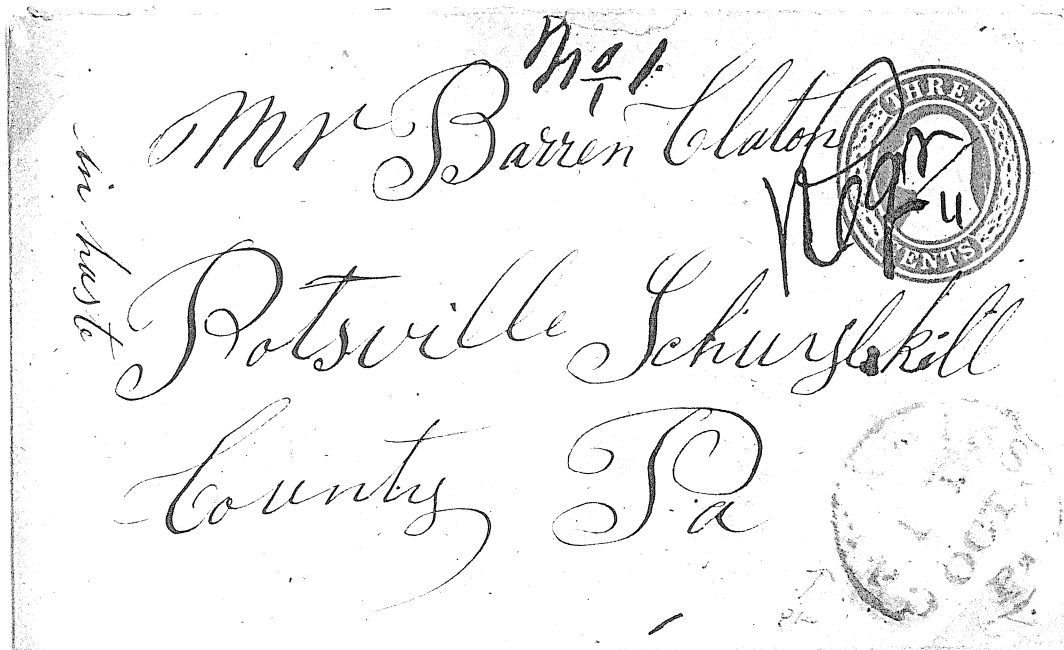 No 1.
Mr Barren Claton
THREE
CENTS
in haste
Potsville Schuylkill
County Pa
OCT